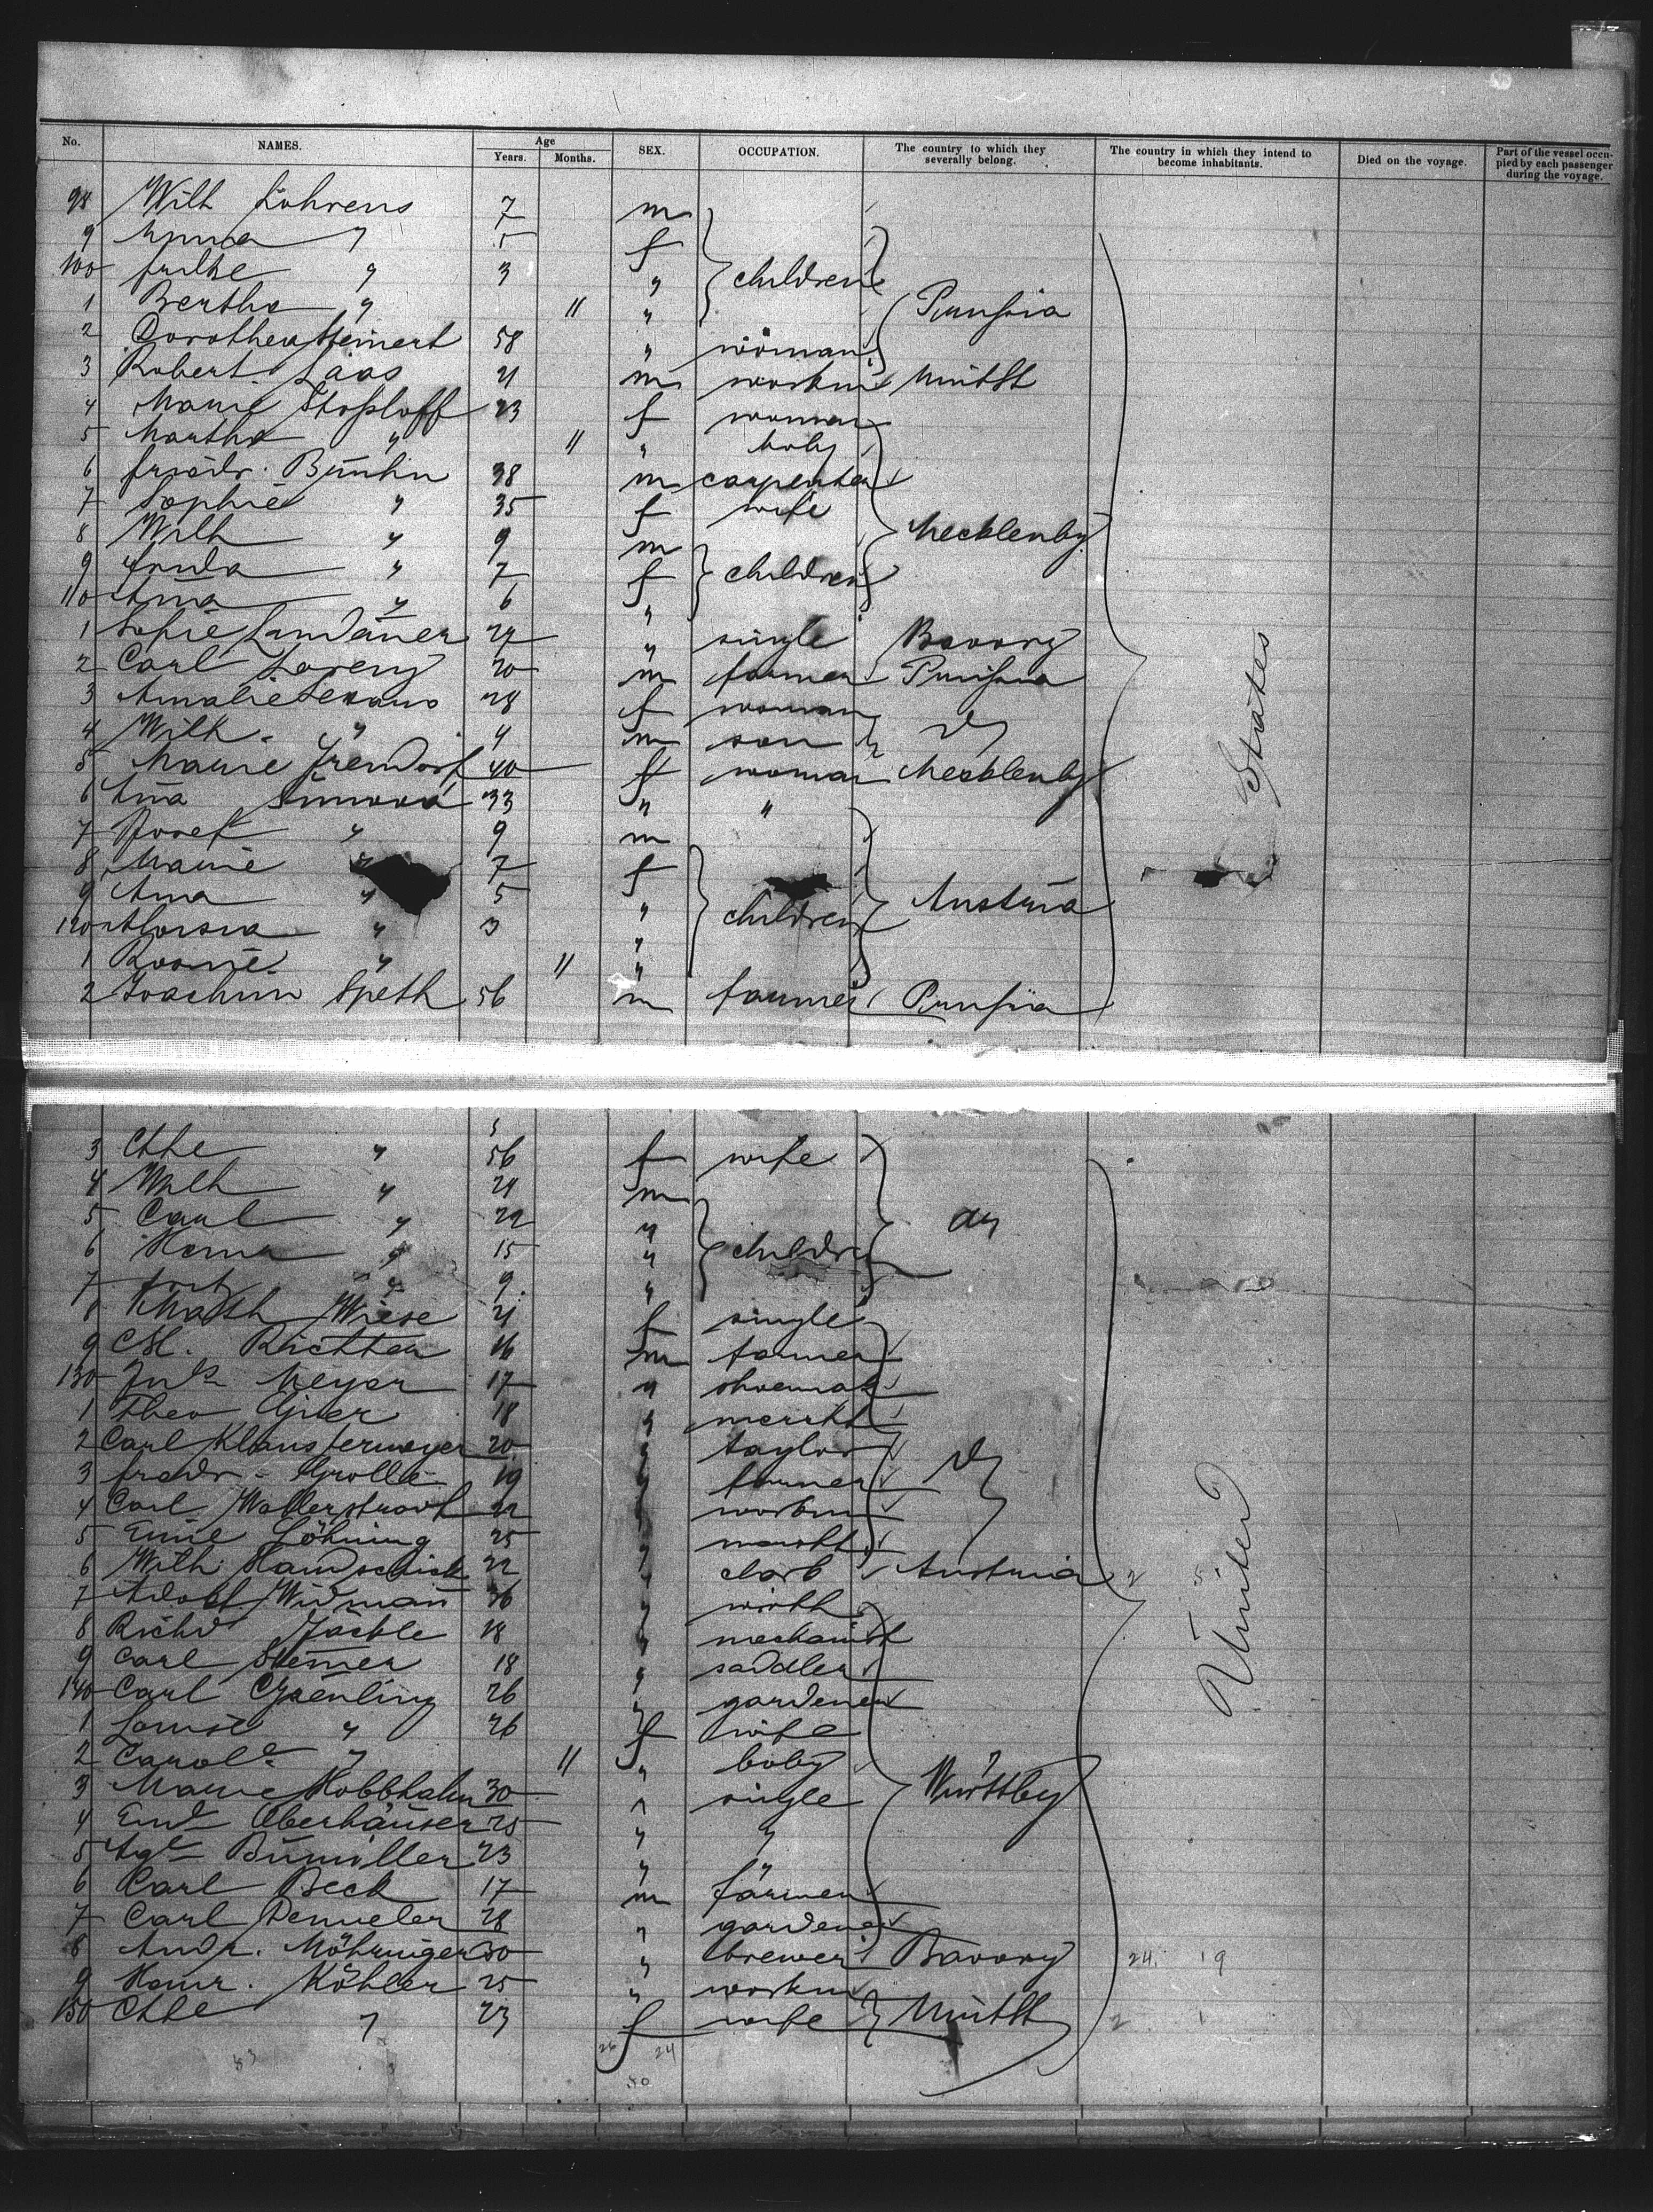 No. NAMES. Age Years. Months. SEX. OCCUPATION. The country to which they severally belong. The country in which they intend to become inhabitants. Died on the voyage. Part of the vessel occupied by each passenger during the voyage.
98 Wilh Löhrens 7 m
9 Emma " 5 f
100 " 3 " children
1 Bertha " 11 " Prussia
2 Dorothea Steinert 58 " woman
3 Robert Laas 21 m workm Unit St
4 Marie Stoßloff 23 f woman
5 Martha " 11 " baby
6 friedr. 38 m carpenter
7 Sophie " 35 f wife
8 Wilh " 9 m Mecklenbg
9 frida " 7 f children
110 Ana " 6 "
1 Sofie Landauer 22 " single Bavary
2 Carl Lorenz 20 m farmer Prussia
3 Amalie 28 f woman
4 Wilh. " 4 m son do
5 Marie 40 f woman Mecklenbg
6 Ana 33 " "
7 Josef " 9 m
8 Marie " 7 f
9 Anna " 5 " Austria
120 Aloisia " 3 " children
1 Rosine " 11 "
2 Joachim Speth 56 m farmer Prussia
States
3 Chte " 56 f wife
4 Wilh " 24 m
5 Carl " 22 " do
6 " 15 " children
7 fritz " 9 "
8 Math Wiese 21 f single
9 Richter 16 m farmer
130 Meyer 17 " shoemak
1 Theo Gier 18 " mercht
2 Carl Klaustermeyer 20 " taylor
3 friedr. Grolle 19 " farmer do
4 Carl 22 " workm
5 Emil Löhning 25 " mercht
6 Wilh Handschick 22 " clerk Austria 2 5
7 Adolf Widman 36 " wirth
8 Richd Jäckle 18 " mechanist
9 Carl Steiner 18 " saddler
140 Carl 26 " gardener
1 Louise " 26 f wife
2 Carole " 11 " baby
3 Marie Hobbhahn 30 " single Württbg
4 Oberhäuser 25 " "
5 Bumiller 23 " "
6 Carl Beck 17 m farmer
7 Carl Demeler 28 " gardener
8 Andr. Möhringer 30 " brewer Bavary 24. 19
9 Heinr. Köhler 25 " workm
150 Chte " 23 f wife Unit St 2 1
United
26 24
50